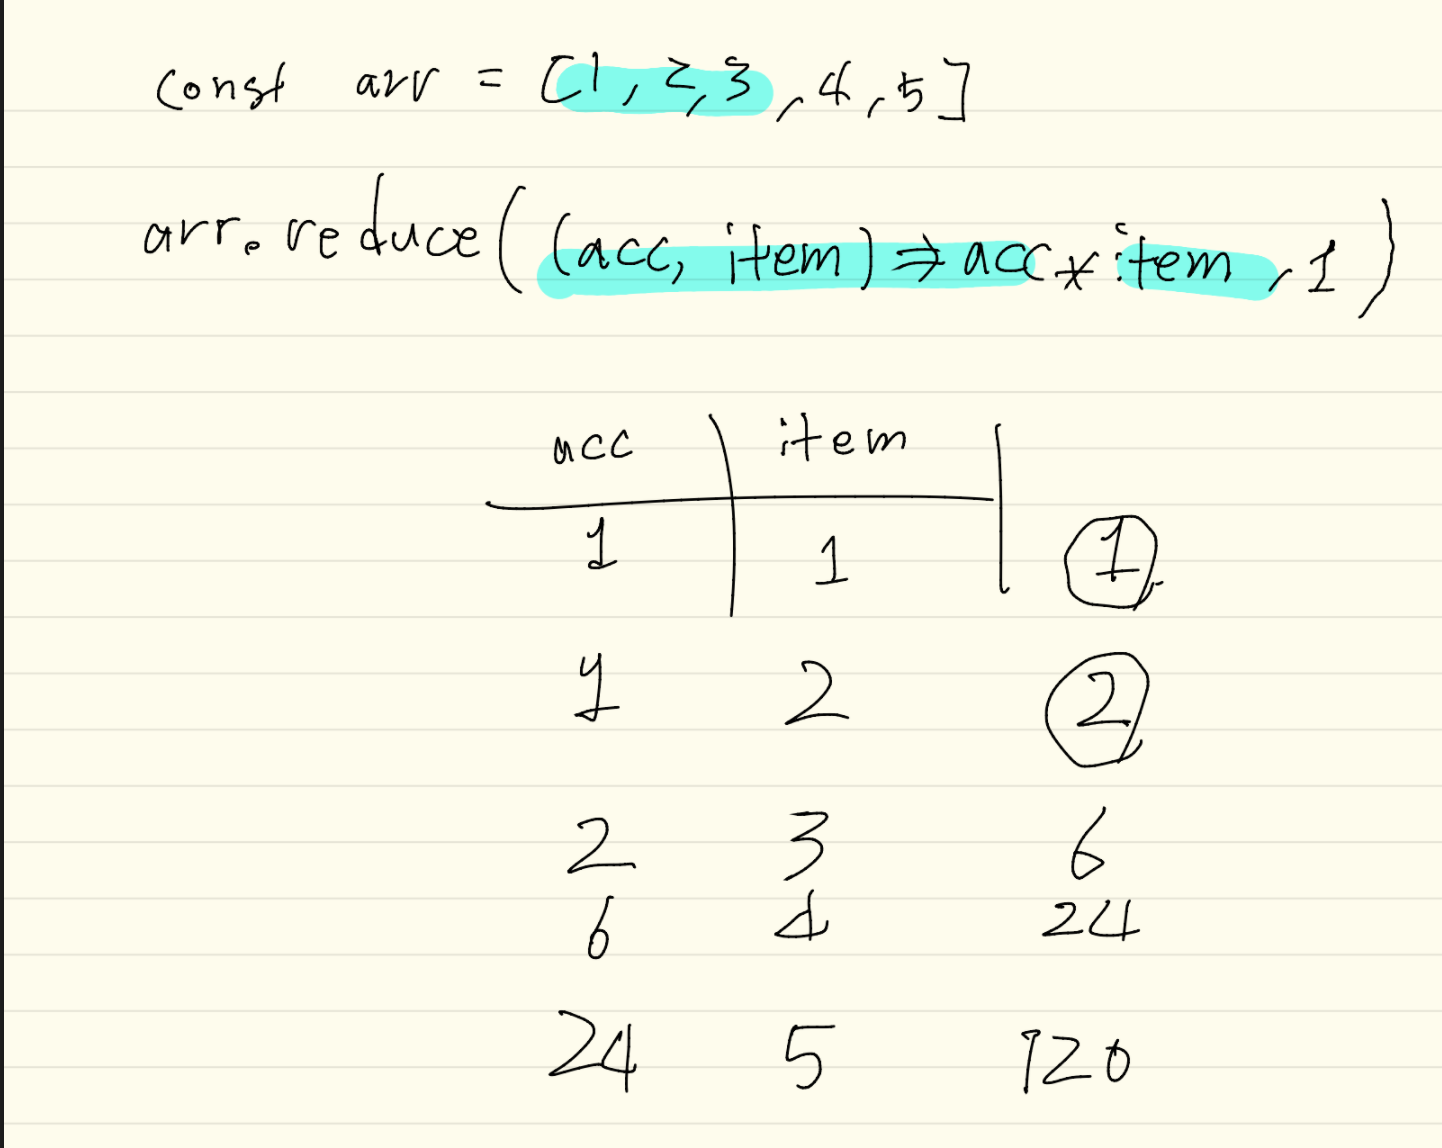 const arr = [1, 2, 3, 4, 5]
arr.reduce((acc, item) => acc * item, 1)
acc item
1 1 1
1 2 2
2 3 6
6 4 24
24 5 120